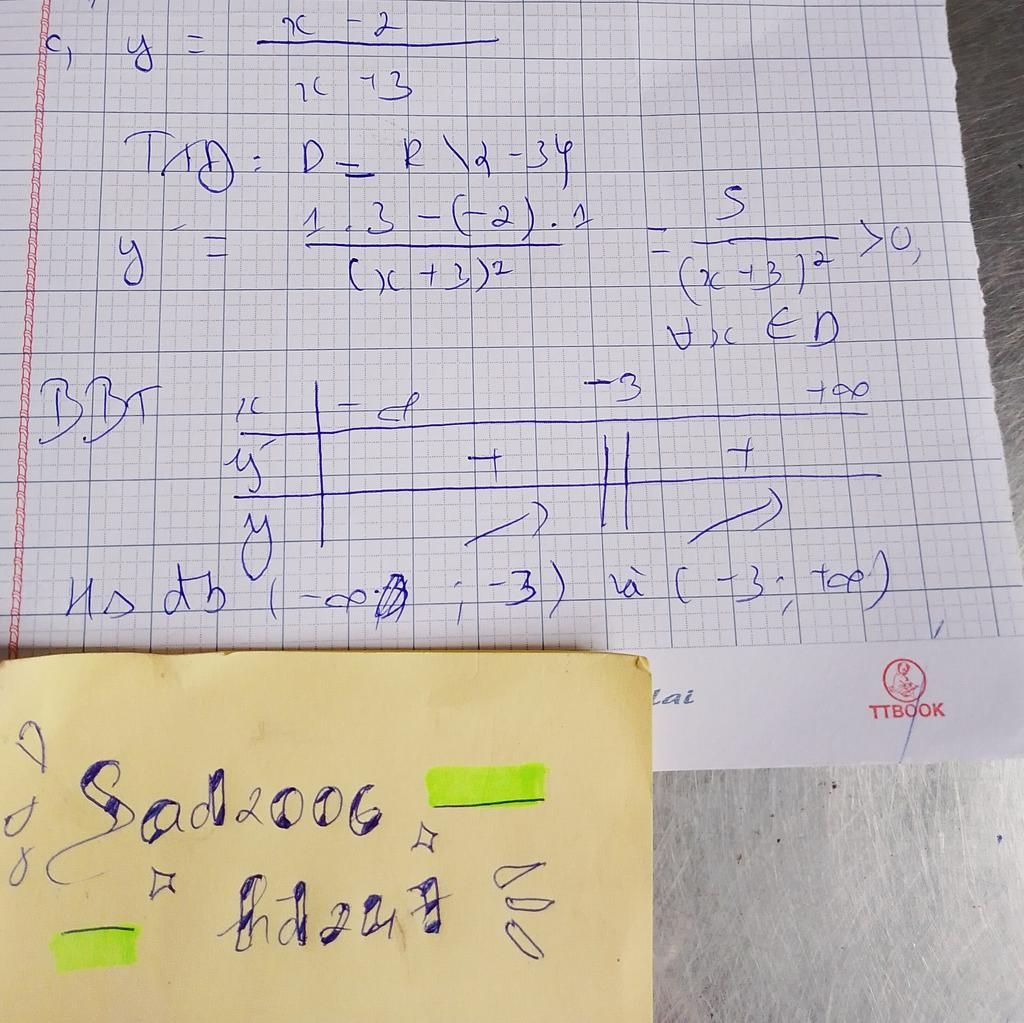 c, y = x - 2
x + 3
TXĐ: D = R \ {-3}
y' = 1.3 - (-2).1 / (x + 3)² = 5 / (x + 3)² > 0,
∀x ∈ D
BBT
x -∞ -3 +∞
y' + || +
y
HS đb (-∞ ; -3) và (-3; +∞)
lai
TTBOOK
Sad2006
hd247